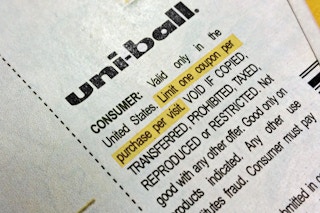 uni-ball.
CONSUMER: Valid only in the
United States. Limit one coupon per
purchase per visit. VOID IF COPIED,
TRANSFERRED, PROHIBITED, TAXED,
REPRODUCED or RESTRICTED. Not
good with any other offer. Good only on
products indicated. Any other use
fraud. Consumer must pay